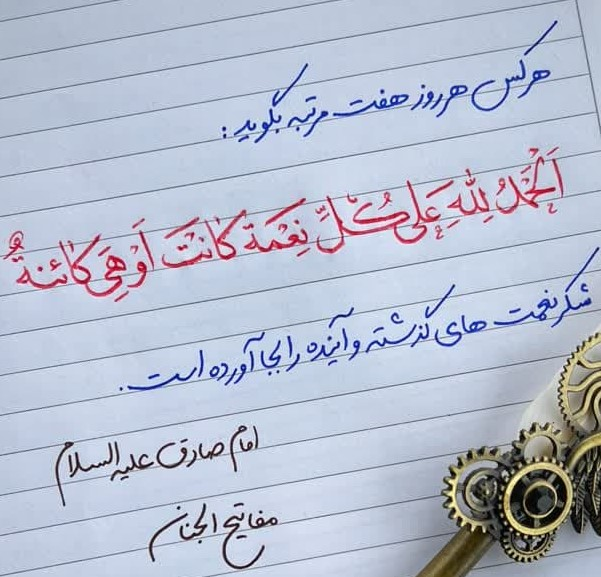 هرکس هر روز هفت مرتبه بگوید:
اَلْحَمْدُ لِلّٰهِ عَلیٰ کُلِّ نِعْمَة کٰانَتْ اَوْ هِیَ کٰائنةٌ
شکر نعمت های گذشته و آینده را بجا آورده است.
امام صادق علیه السلام
مفاتیح الجنان